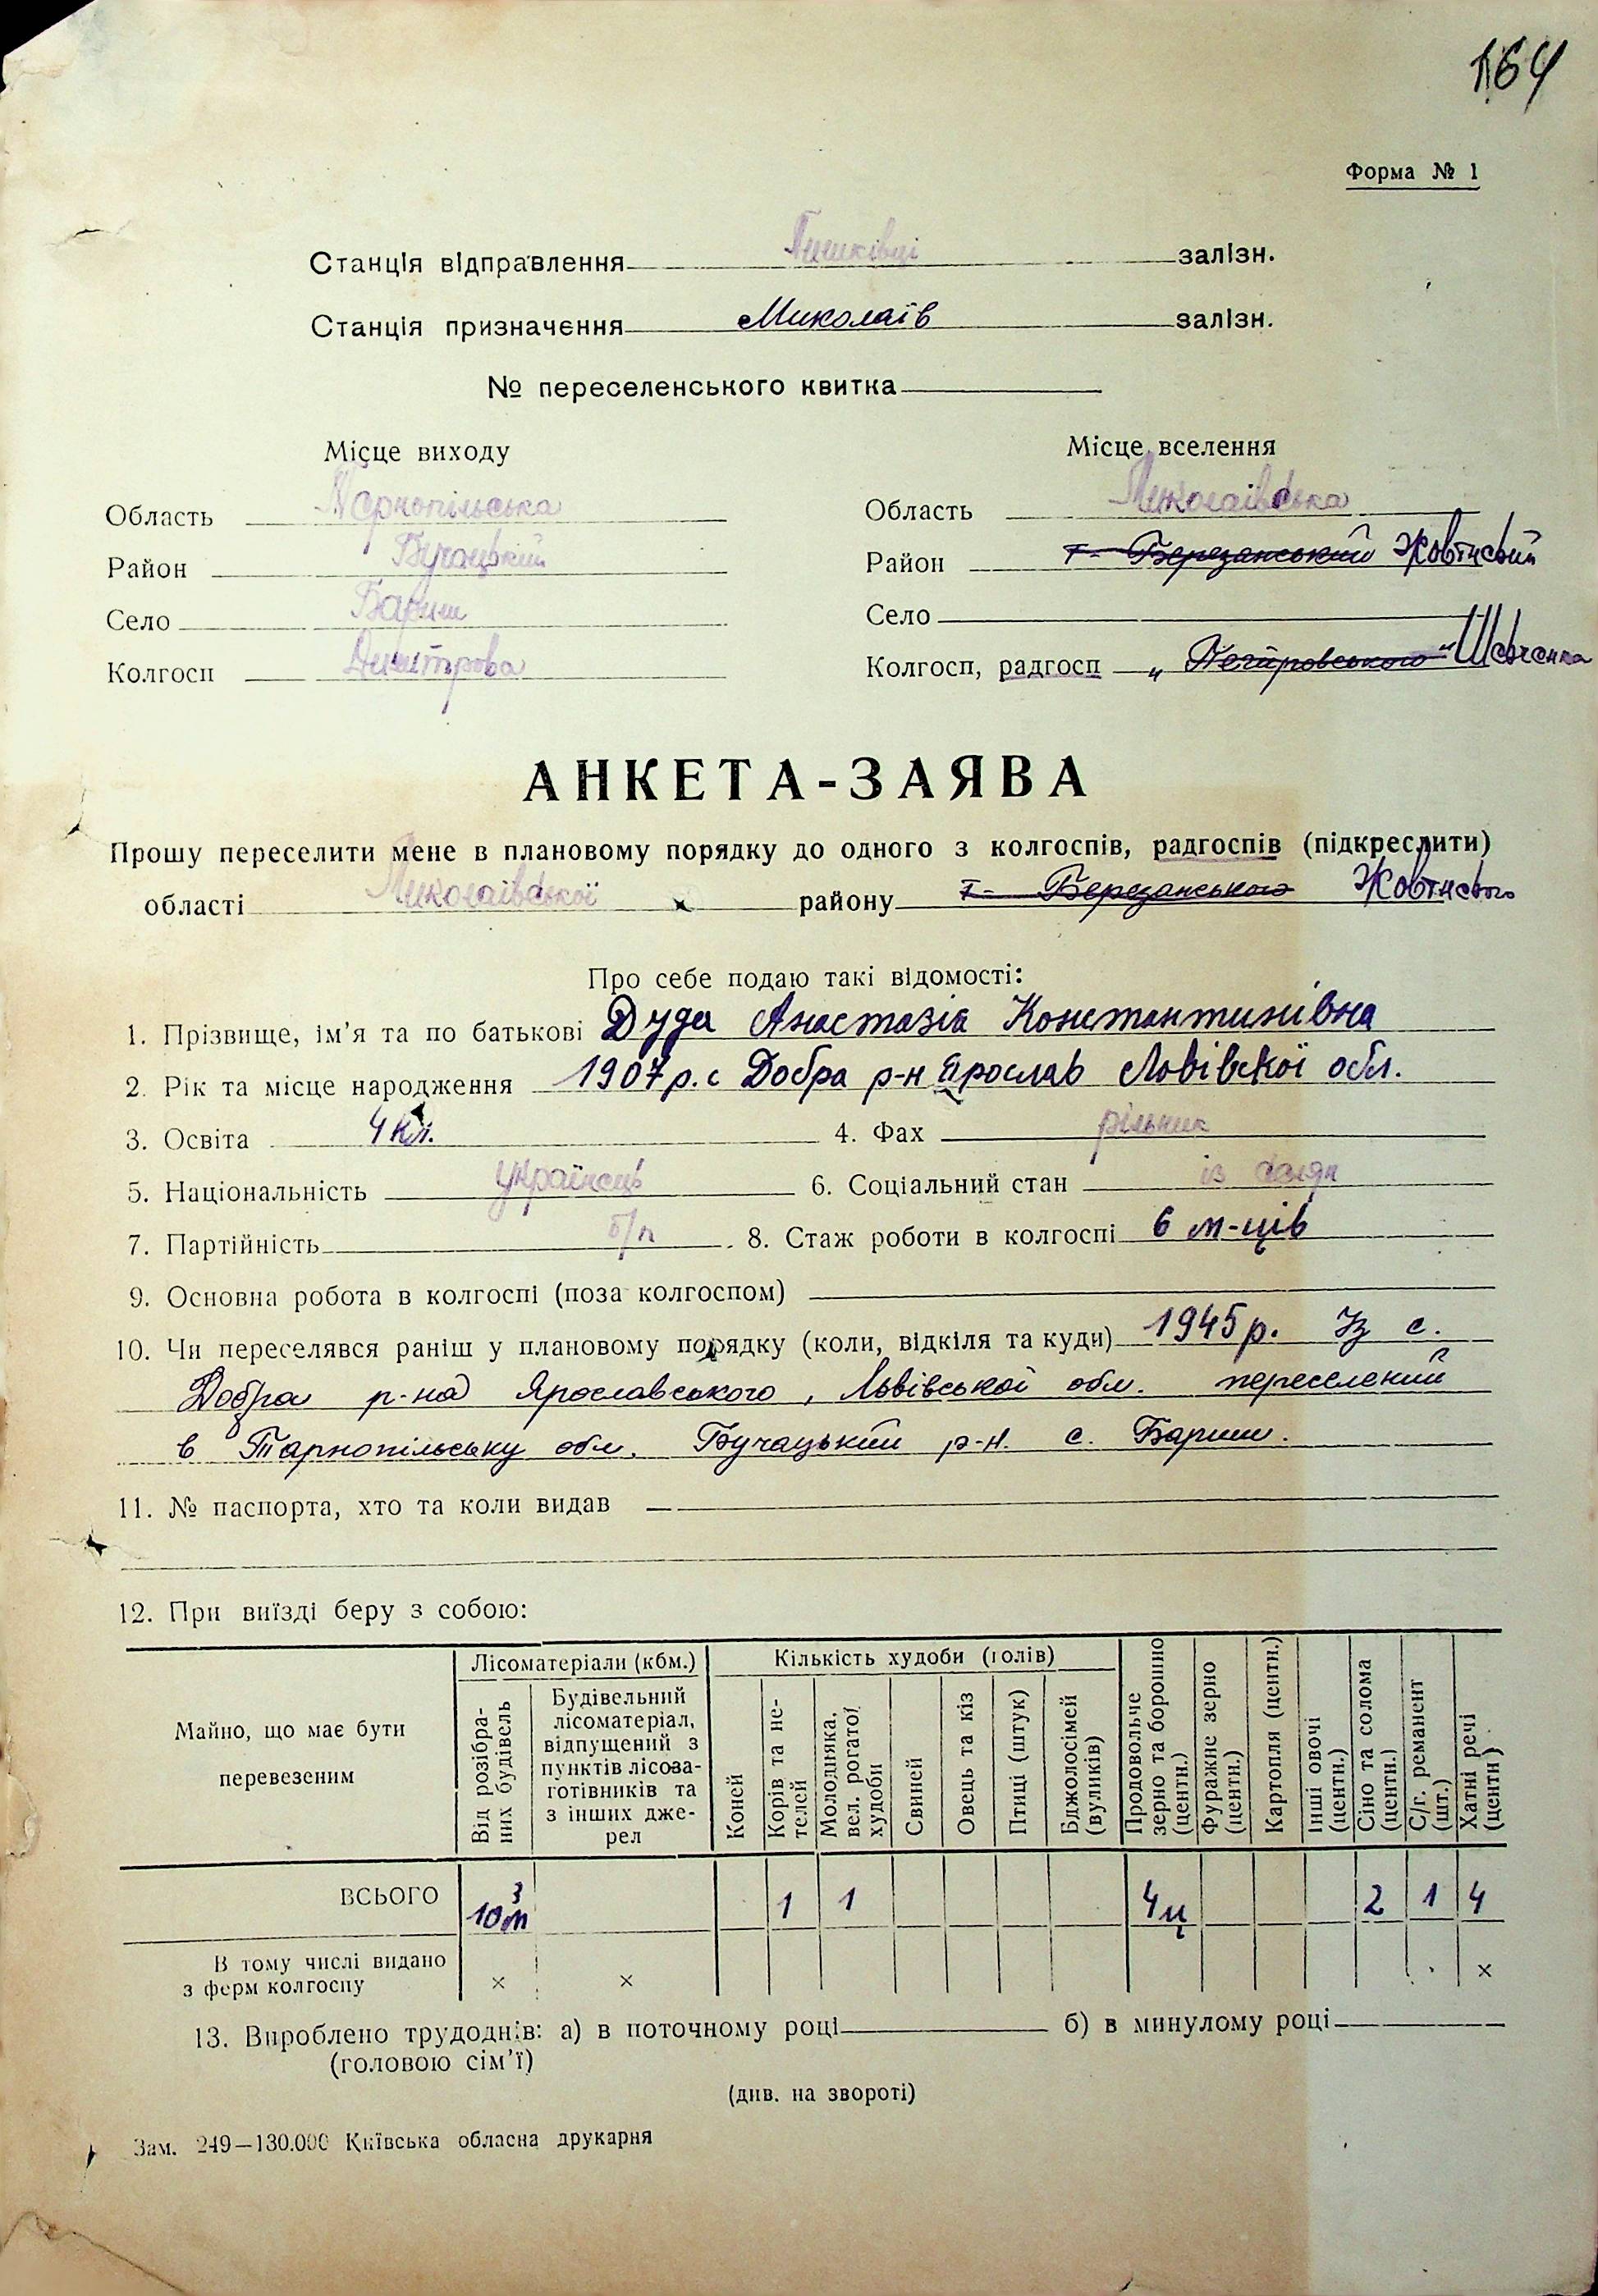 164
Форма № 1
Станція відправлення Пишківці залізн.
Станція призначення Миколаїв залізн.
№ переселенського квитка
Місце виходу Місце вселення
Область Тарнопільська Область Миколаївська
Район Бучацький Район Т- Березанський Жовтневий
Село Бариш Село
Колгосп Димитрова Колгосп, радгосп „ " Шевченка
АНКЕТА-ЗАЯВА
Прошу переселити мене в плановому порядку до одного з колгоспів, радгоспів (підкреслити)
області Миколаївської району Т- Березанського Жовтневого
Про себе подаю такі відомості:
1. Прізвище, ім'я та по батькові Дуда Анастазія Константинівна
2. Рік та місце народження 1907 р. с Добра р-н Ярослав Львівської обл.
3. Освіта 4 кл. 4. Фах рільник
5. Національність українець 6. Соціальний стан із селян
7. Партійність б/п 8. Стаж роботи в колгоспі 6 м-ців
9. Основна робота в колгоспі (поза колгоспом)
10. Чи переселявся раніш у плановому порядку (коли, відкіля та куди) 1945 р. Із с.
Добра р-на Ярославського, Львівської обл. переселений
в Тарнопільську обл. Бучацький р-н. с. Бариш.
11. № паспорта, хто та коли видав —
12. При виїзді беру з собою:
Майно, що має бути перевезеним
Лісоматеріали (кбм.)
Від розібраних будівель
Будівельний лісоматеріал, відпущений з пунктів лісозаготівників та з інших джерел
Кількість худоби (голів)
Коней
Корів та нетелей
Молодняка, вел. рогатої худоби
Свиней
Овець та кіз
Птиці (штук)
Бджолосімей (вуликів)
Продовольче зерно та борошно (центн.)
Фуражне зерно (центн.)
Картопля (центн.)
Інші овочі (центн.)
Сіно та солома (центн.)
С/г. реманент (шт.)
Хатні речі (центн)
ВСЬОГО 10 м3 1 1 4 ц 2 1 4
В тому числі видано
з ферм колгоспу × × ×
13. Вироблено трудоднів: а) в поточному році б) в минулому році
(головою сім'ї)
(див. на звороті)
Зам. 249—130.000 Київська обласна друкарня